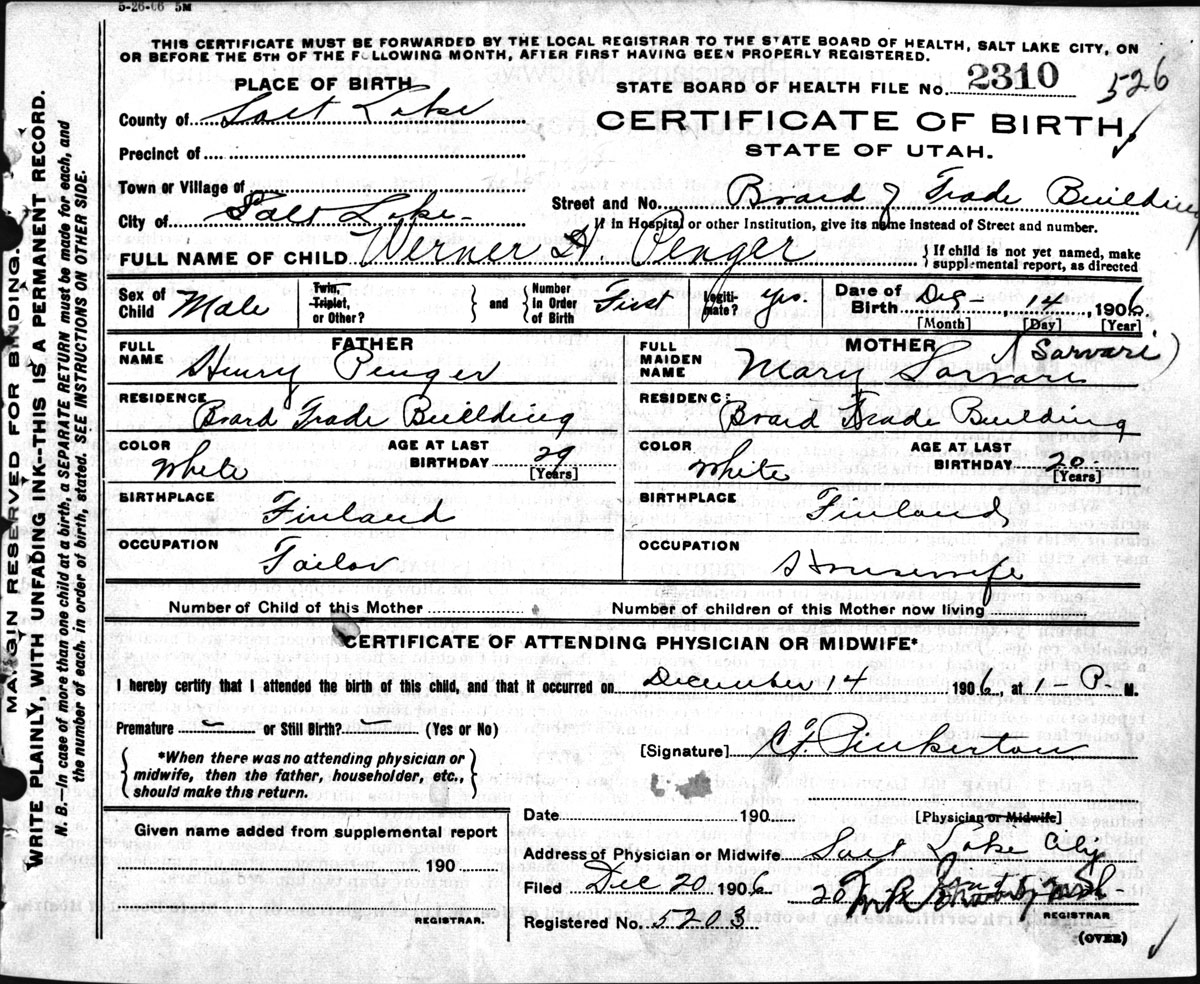 5-26-06 5M
THIS CERTIFICATE MUST BE FORWARDED BY THE LOCAL REGISTRAR TO THE STATE BOARD OF HEALTH, SALT LAKE CITY, ON
OR BEFORE THE 5TH OF THE FOLLOWING MONTH, AFTER FIRST HAVING BEEN PROPERLY REGISTERED.
PLACE OF BIRTH
STATE BOARD OF HEALTH FILE No. 2310 526
County of Salt Lake
CERTIFICATE OF BIRTH
Precinct of
STATE OF UTAH.
Town or Village of
Street and No. Board of Trade Building
City of Salt Lake
If in Hospital or other Institution, give its name instead of Street and number.
FULL NAME OF CHILD Werner H. Penger
{ If child is not yet named, make
supplemental report, as directed
Sex of Child Male
Twin, Triplet, or Other?
and
Number in Order of Birth First
Legiti-mate? Yes.
Date of Birth Dec 14, 1906
[Month] [Day] [Year]
FATHER
FULL NAME Henry Penger
RESIDENCE Board Trade Building
COLOR White
AGE AT LAST BIRTHDAY 29 [Years]
BIRTHPLACE Finland
OCCUPATION Tailor
MOTHER (Sarvari)
FULL MAIDEN NAME Mary Sarvari
RESIDENCE Board Trade Building
COLOR White
AGE AT LAST BIRTHDAY 20 [Years]
BIRTHPLACE Finland
OCCUPATION Housewife
Number of Child of this Mother
Number of children of this Mother now living
CERTIFICATE OF ATTENDING PHYSICIAN OR MIDWIFE*
I hereby certify that I attended the birth of this child, and that it occurred on December 14 1906, at 1- P. M.
Premature – or Still Birth? – (Yes or No)
*When there was no attending physician or
midwife, then the father, householder, etc.,
should make this return.
[Signature] Pinkerton
Date 190
[Physician or Midwife]
Given name added from supplemental report
190
REGISTRAR.
Address of Physician or Midwife Salt Lake City
Filed Dec 20 1906
REGISTRAR
Registered No. 5203
(OVER)
MARGIN RESERVED FOR BINDING.
WRITE PLAINLY, WITH UNFADING INK--THIS IS A PERMANENT RECORD.
N. B.--In case of more than one child at a birth, a SEPARATE RETURN must be made for each, and
the number of each, in order of birth, stated. SEE INSTRUCTIONS ON OTHER SIDE.